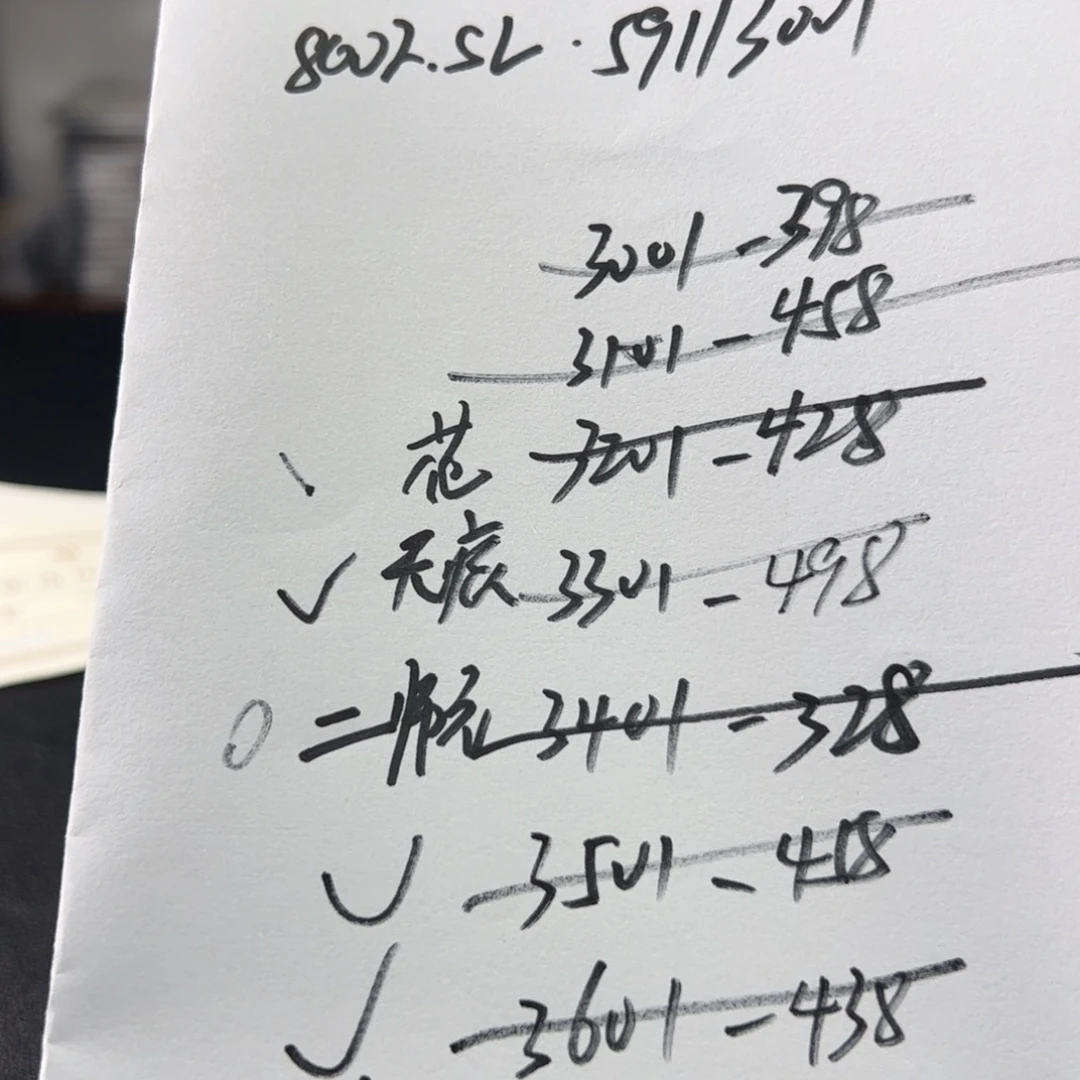 8002.52.59113001
3001-398
3101-458
花 3201-428
无痕 3301-498
二师兄 3401-328
3501-418
3601-438